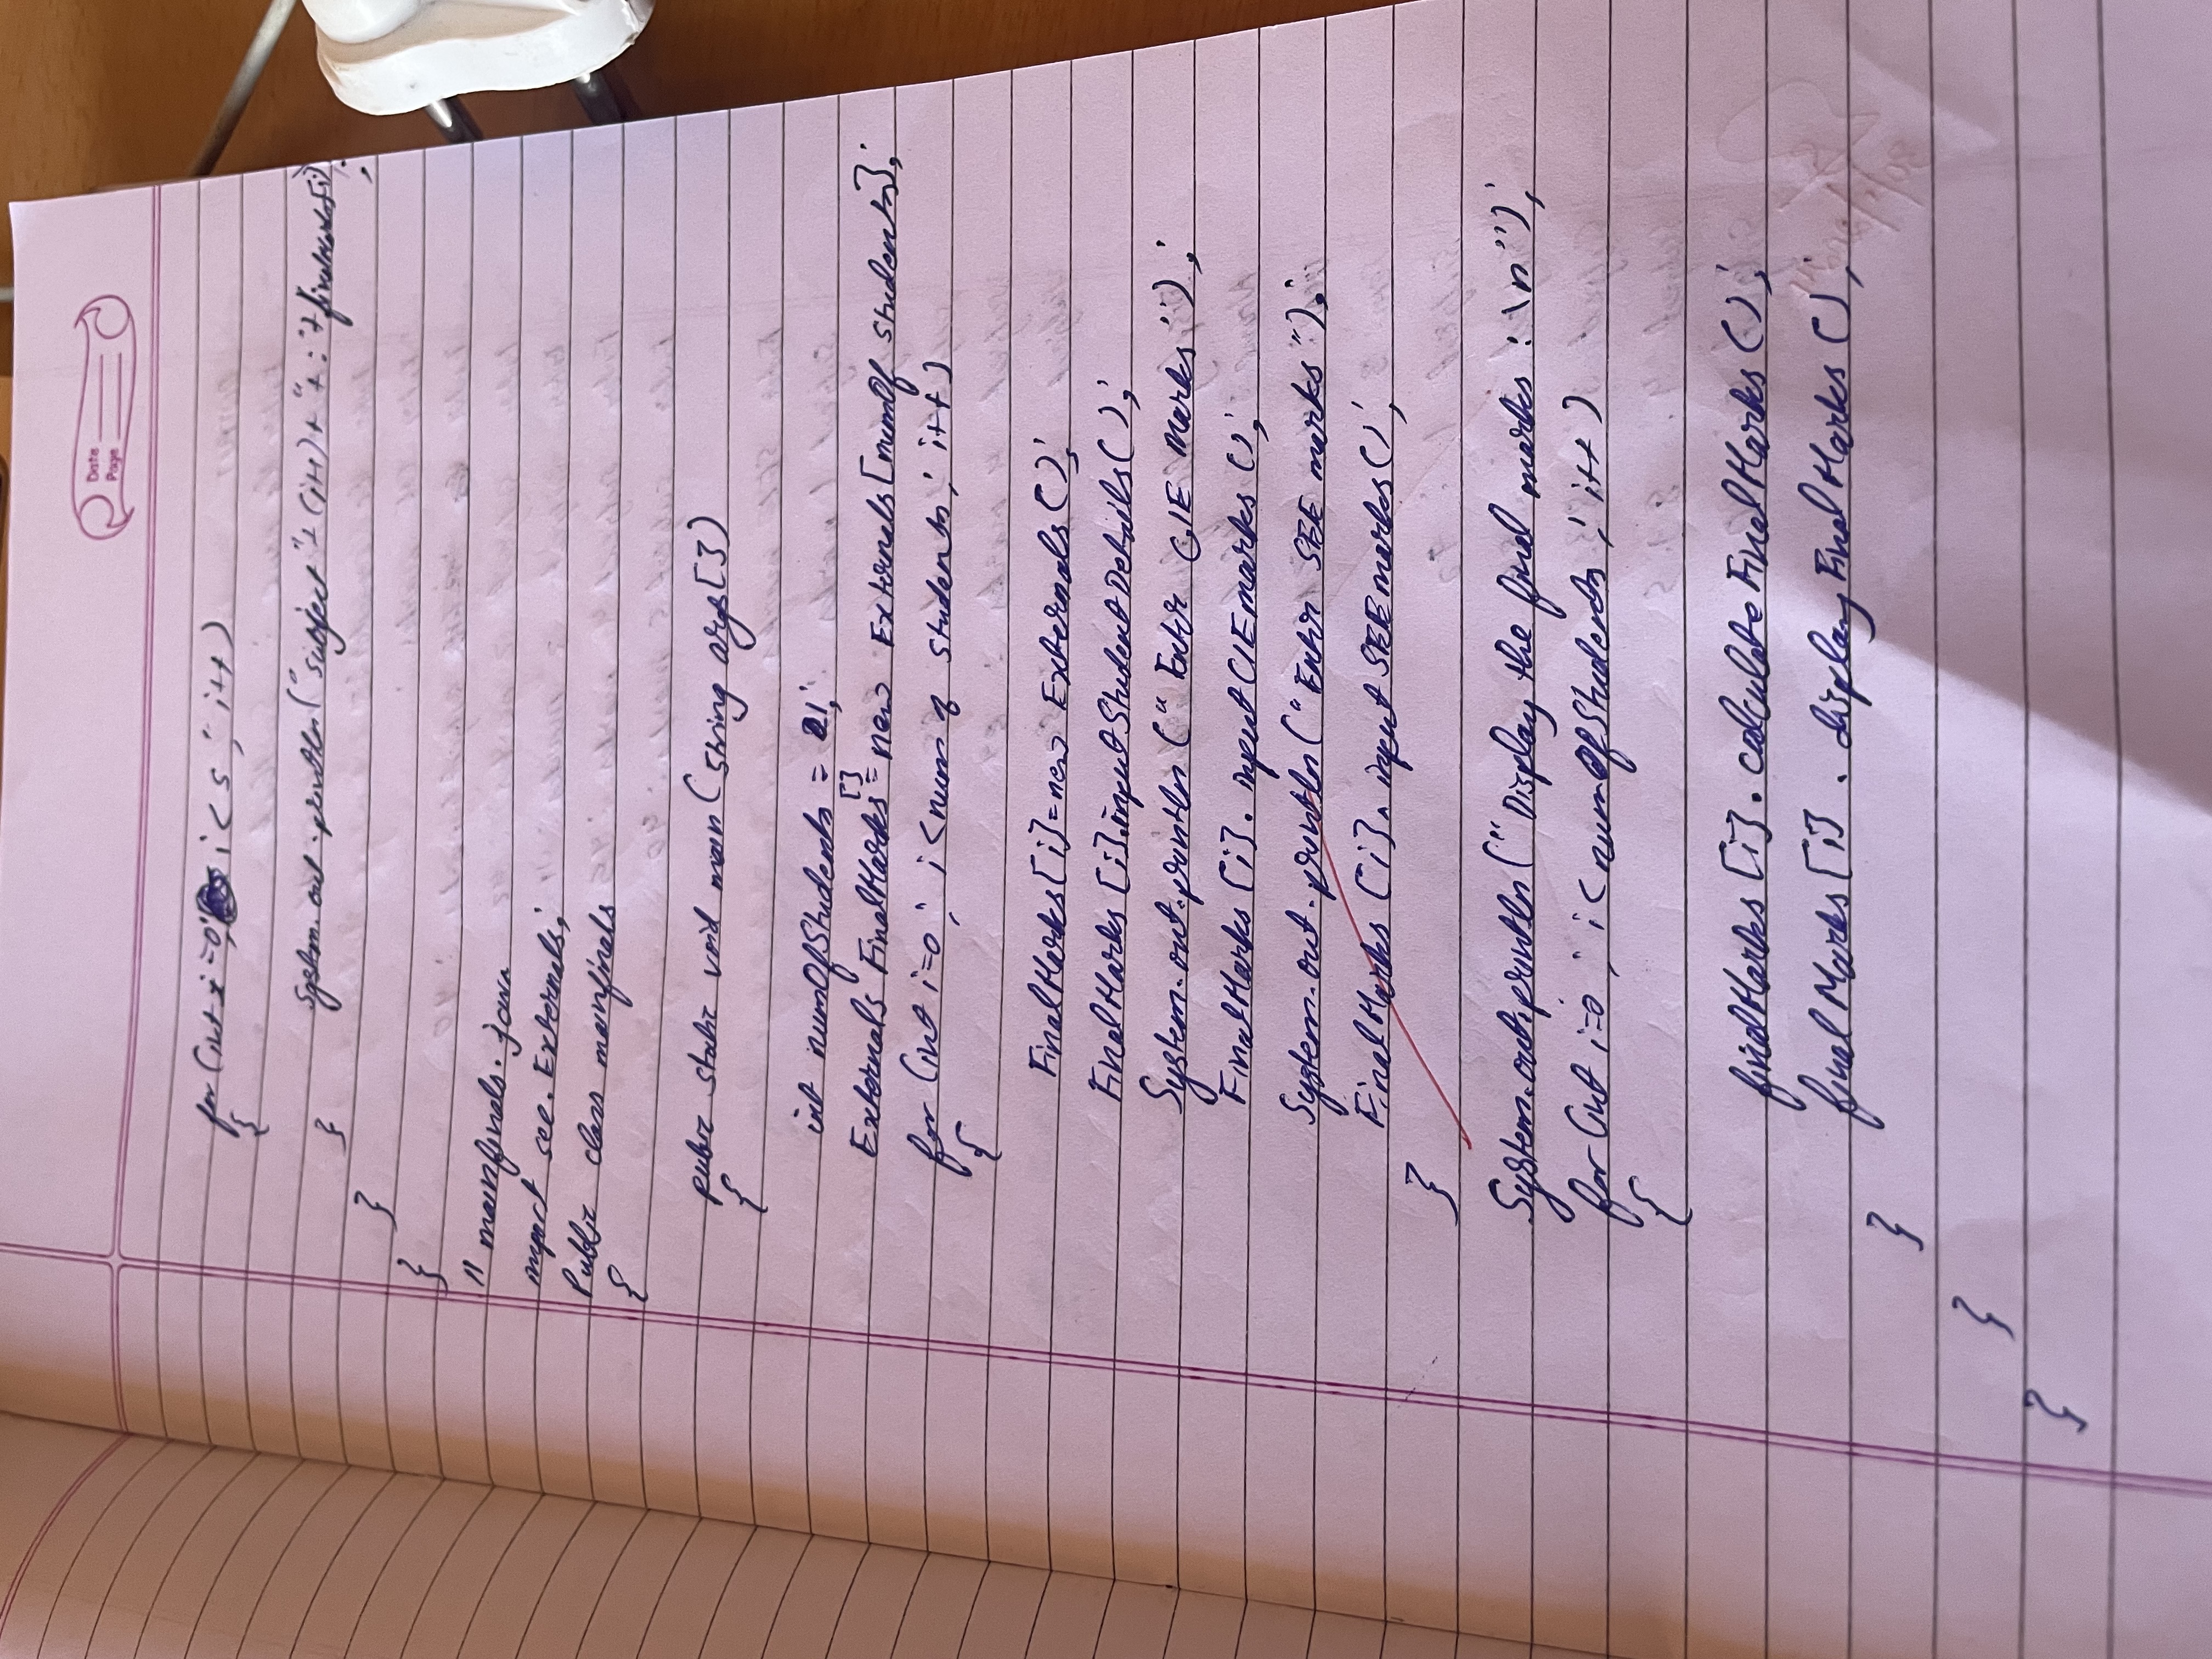 Date
Page
for (int i=0; i < 5; i++)
{
System.out.println("subject"+ (i+1) + "+ : "+finalMarks[i])
;
}
}
}
// mainfinals.java
import see.Externals;
Public class mainfinals
{
public static void main(String args[])
{
int numOfStudents = 1;
Externals FinalMarks[] = new Externals[numOf students];
for (int i=0; i<num of students; i++)
{
FinalMarks[i]=new Externals();
FinalMarks[i].inputStudentDetails();
System.out.println("Enter CIE Marks");
FinalMarks[i].inputCIEmarks();
System.out.println("Enter SEE marks");
FinalMarks[i].inputSEEmarks();
}
System.out.println("Display the final marks : \n");
for(int i=0; i<numOfStudents; i++)
{
finalMarks[i].calculateFinalMarks();
finalMarks[i].displayFinalMarks();
}
}
}